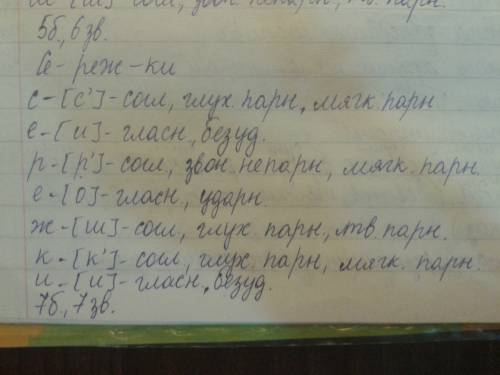 [ш] - согл, звон. непарн, тв. парн.
5б, 6зв.
Се - реж - ки
с - [с'] - согл, глух. парн, мягк. парн
е - [и] - гласн, безуд.
р - [р'] - согл, звон. непарн, мягк. парн.
е - [о] - гласн, ударн
ж - [ш] - согл, глух. парн, тв. парн.
к - [к'] - согл, глух. парн, мягк. парн.
и - [и] - гласн, безуд.
7б, 7зв.